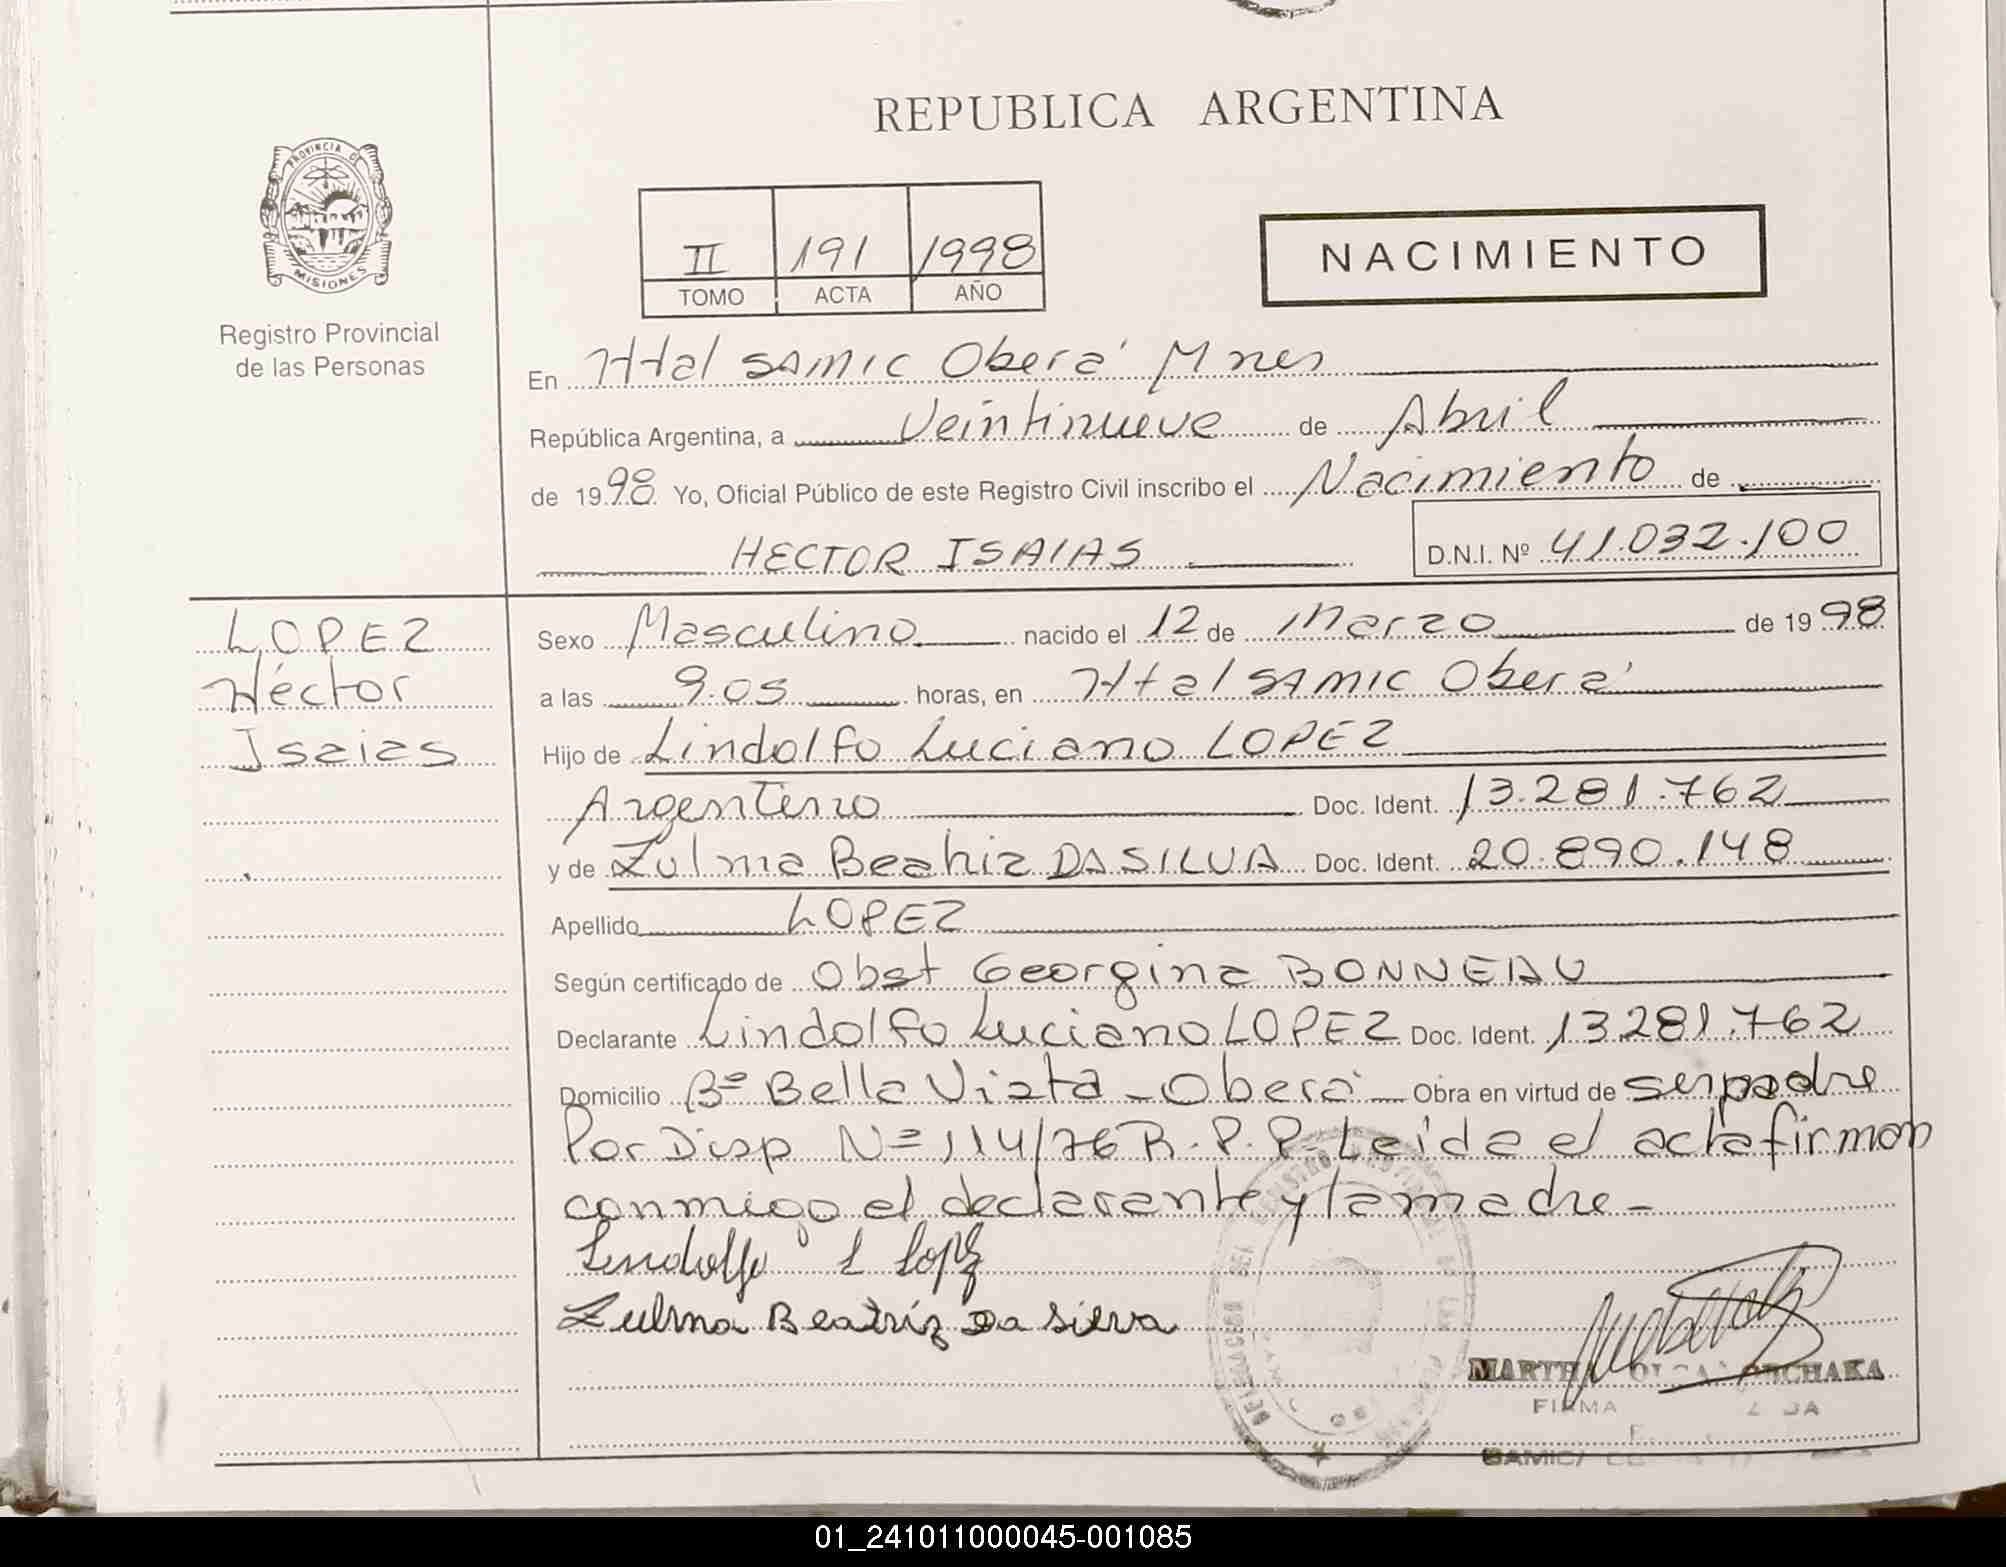 REPUBLICA ARGENTINA
PROVINCIA DE
MISIONES
Registro Provincial
de las Personas
II 191 1998
TOMO ACTA AÑO
NACIMIENTO
En Htal SAMIC Oberá Mnes
República Argentina, a Veintinueve de Abril
de 1998 Yo, Oficial Público de este Registro Civil inscribo el Nacimiento de
HECTOR ISAIAS D.N.I. Nº 41.032.100
LOPEZ
Héctor
Isaias
Sexo Masculino nacido el 12 de Marzo de 1998
a las 9.05 horas, en Htal SAMIC Oberá
Hijo de Lindolfo Luciano LOPEZ
Argentino Doc. Ident. 13.281.762
y de Zulma Beatriz DA SILVA Doc. Ident. 20.890.148
Apellido LOPEZ
Según certificado de Obst Georgina BONNEAU
Declarante Lindolfo Luciano LOPEZ Doc. Ident. 13.281.762
Domicilio Bº Bella Vista - Oberá Obra en virtud de ser padre
Por Disp Nº 114/76 R.P.P. Leida el acta firman
conmigo el declarante y la madre -
Lindolfo L Lopez
Zulma Beatriz Da Silva
MARTHA OLGA CHAKA
FIRMA
SAMIC
01_241011000045-001085